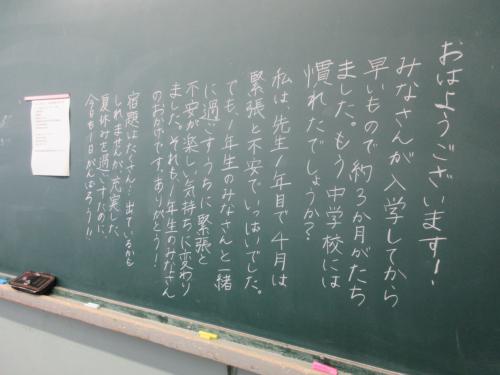 おはようございます!
みなさんが入学してから
早いもので約3か月がたち
ました。もう中学校には
慣れたでしょうか?
私は、先生1年目で4月は
緊張と不安でいっぱいでした。
でも、1年生のみなさんと一緒
に過ごすうちに、緊張と
不安が楽しい気持ちに変わり
ました。それも、1年生のみなさん
のおかげです。ありがとう!
宿題はたくさん…出ているかも
しれませんが、充実した、
夏休みを過ごすために、
今日も1日がんばろう!!